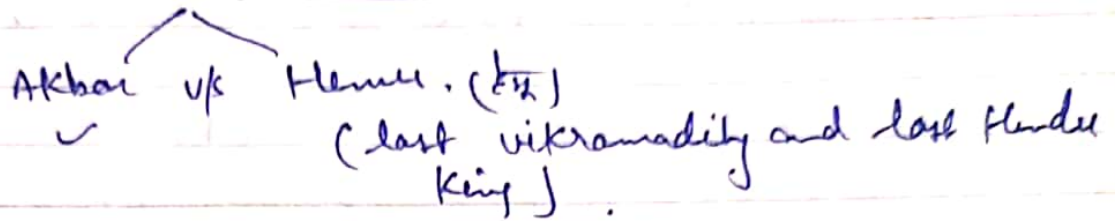 Akbar v/s Hemu. (हेमू)
(last vikramadity and last Hindu
King).